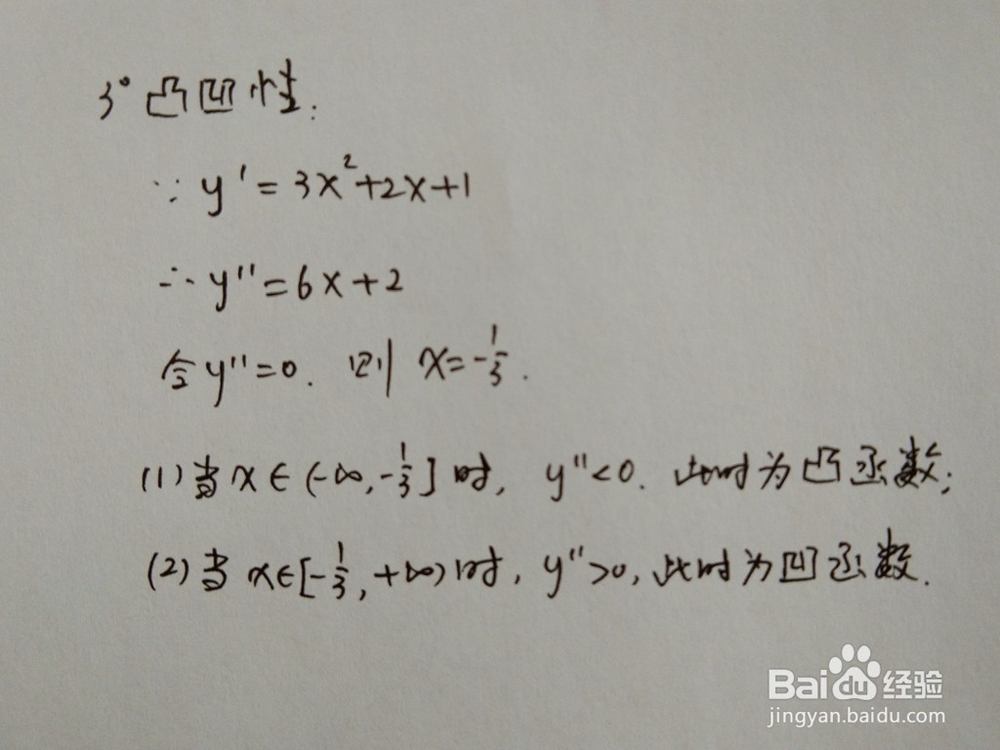 3° 凸凹性:
∵ y' = 3x²+2x+1
∴ y'' = 6x+2
令 y''=0. 则 x=-1/3.
(1) 当 x∈(-∞,-1/3] 时, y''<0. 此时为凸函数;
(2) 当 x∈[-1/3,+∞) 时, y''>0, 此时为凹函数.
Baidu经验
jingyan.baidu.com